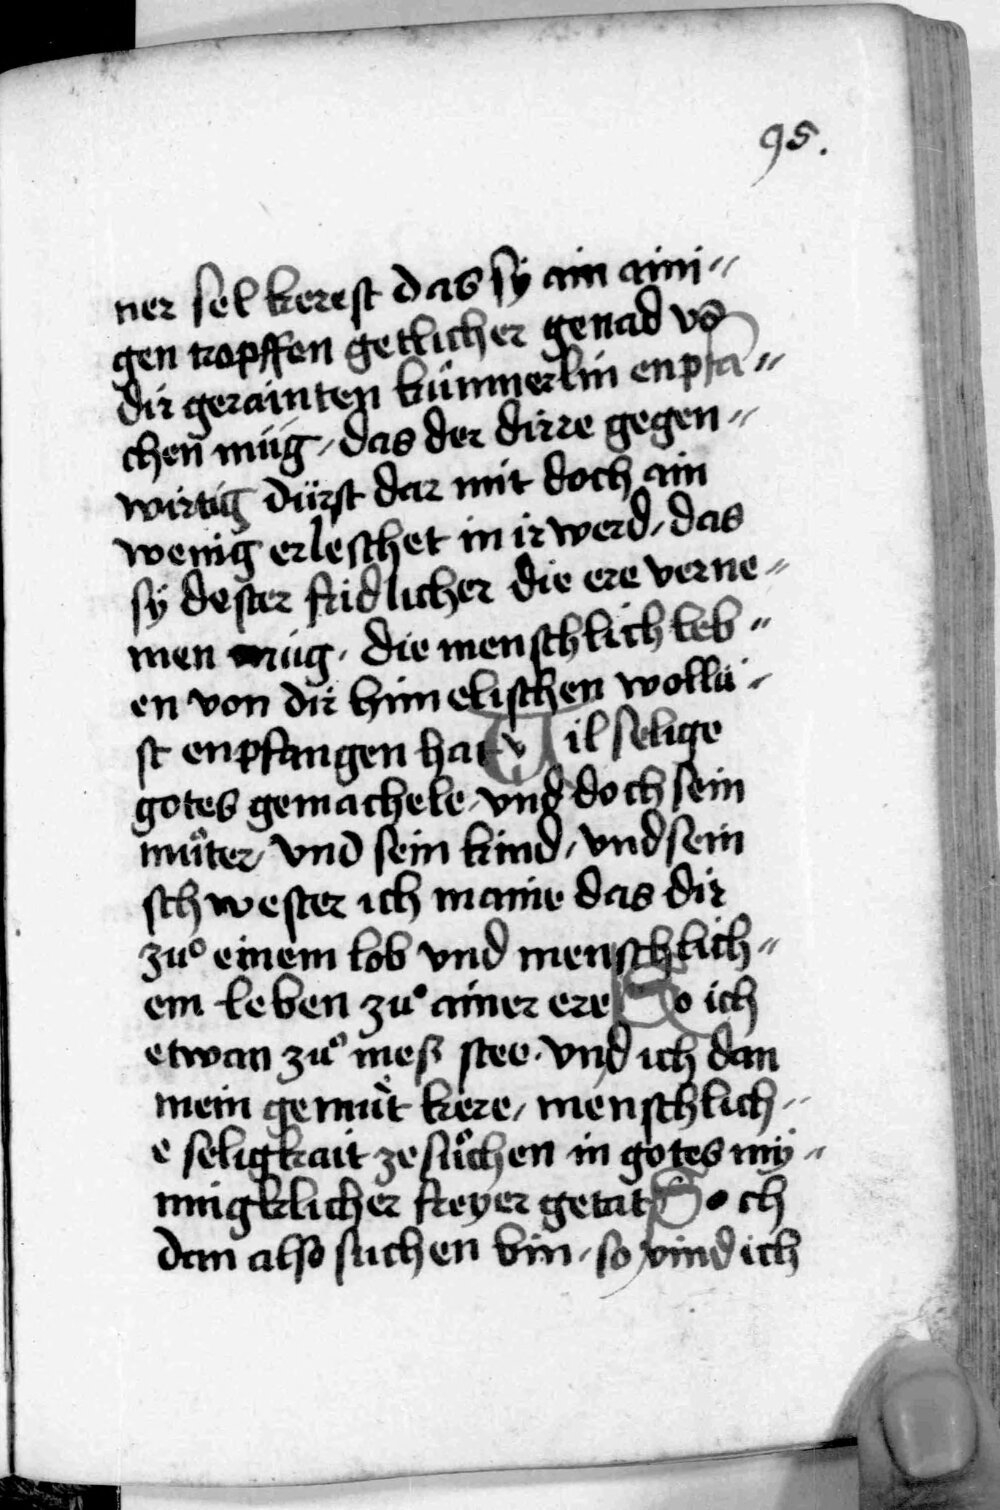 95.
ner sel kerest das sy ain aini〃
gen tropffen getlicher genad vō
dir gerainten kümmerlin enpfā〃
chen müg / das der dirre gegen〃
wirtig dürst dar mit doch ain
wenig erleschet in ir werd / das
sÿ dester fridlicher die ere verne〃
men müg / die menschlich leb〃
en von dir himelischen wollü〃
st enpfangen hat Vil selige
gotes gemachele / vnd doch sein
muͦter / vnd sein kind / vnd sein
schwester ich maine das dir
zuͦ einem lob vnd menschlich〃
em leben zuͦ ainer ere So ich
etwan zuͦ mess stee · vnd ich dan
mein gemuͤt kere / menschlich〃
e seligkait ze suͦchen in gotes mÿ〃
nnigklicher freyer getat So ch
dan also suchen bin / so vind ich